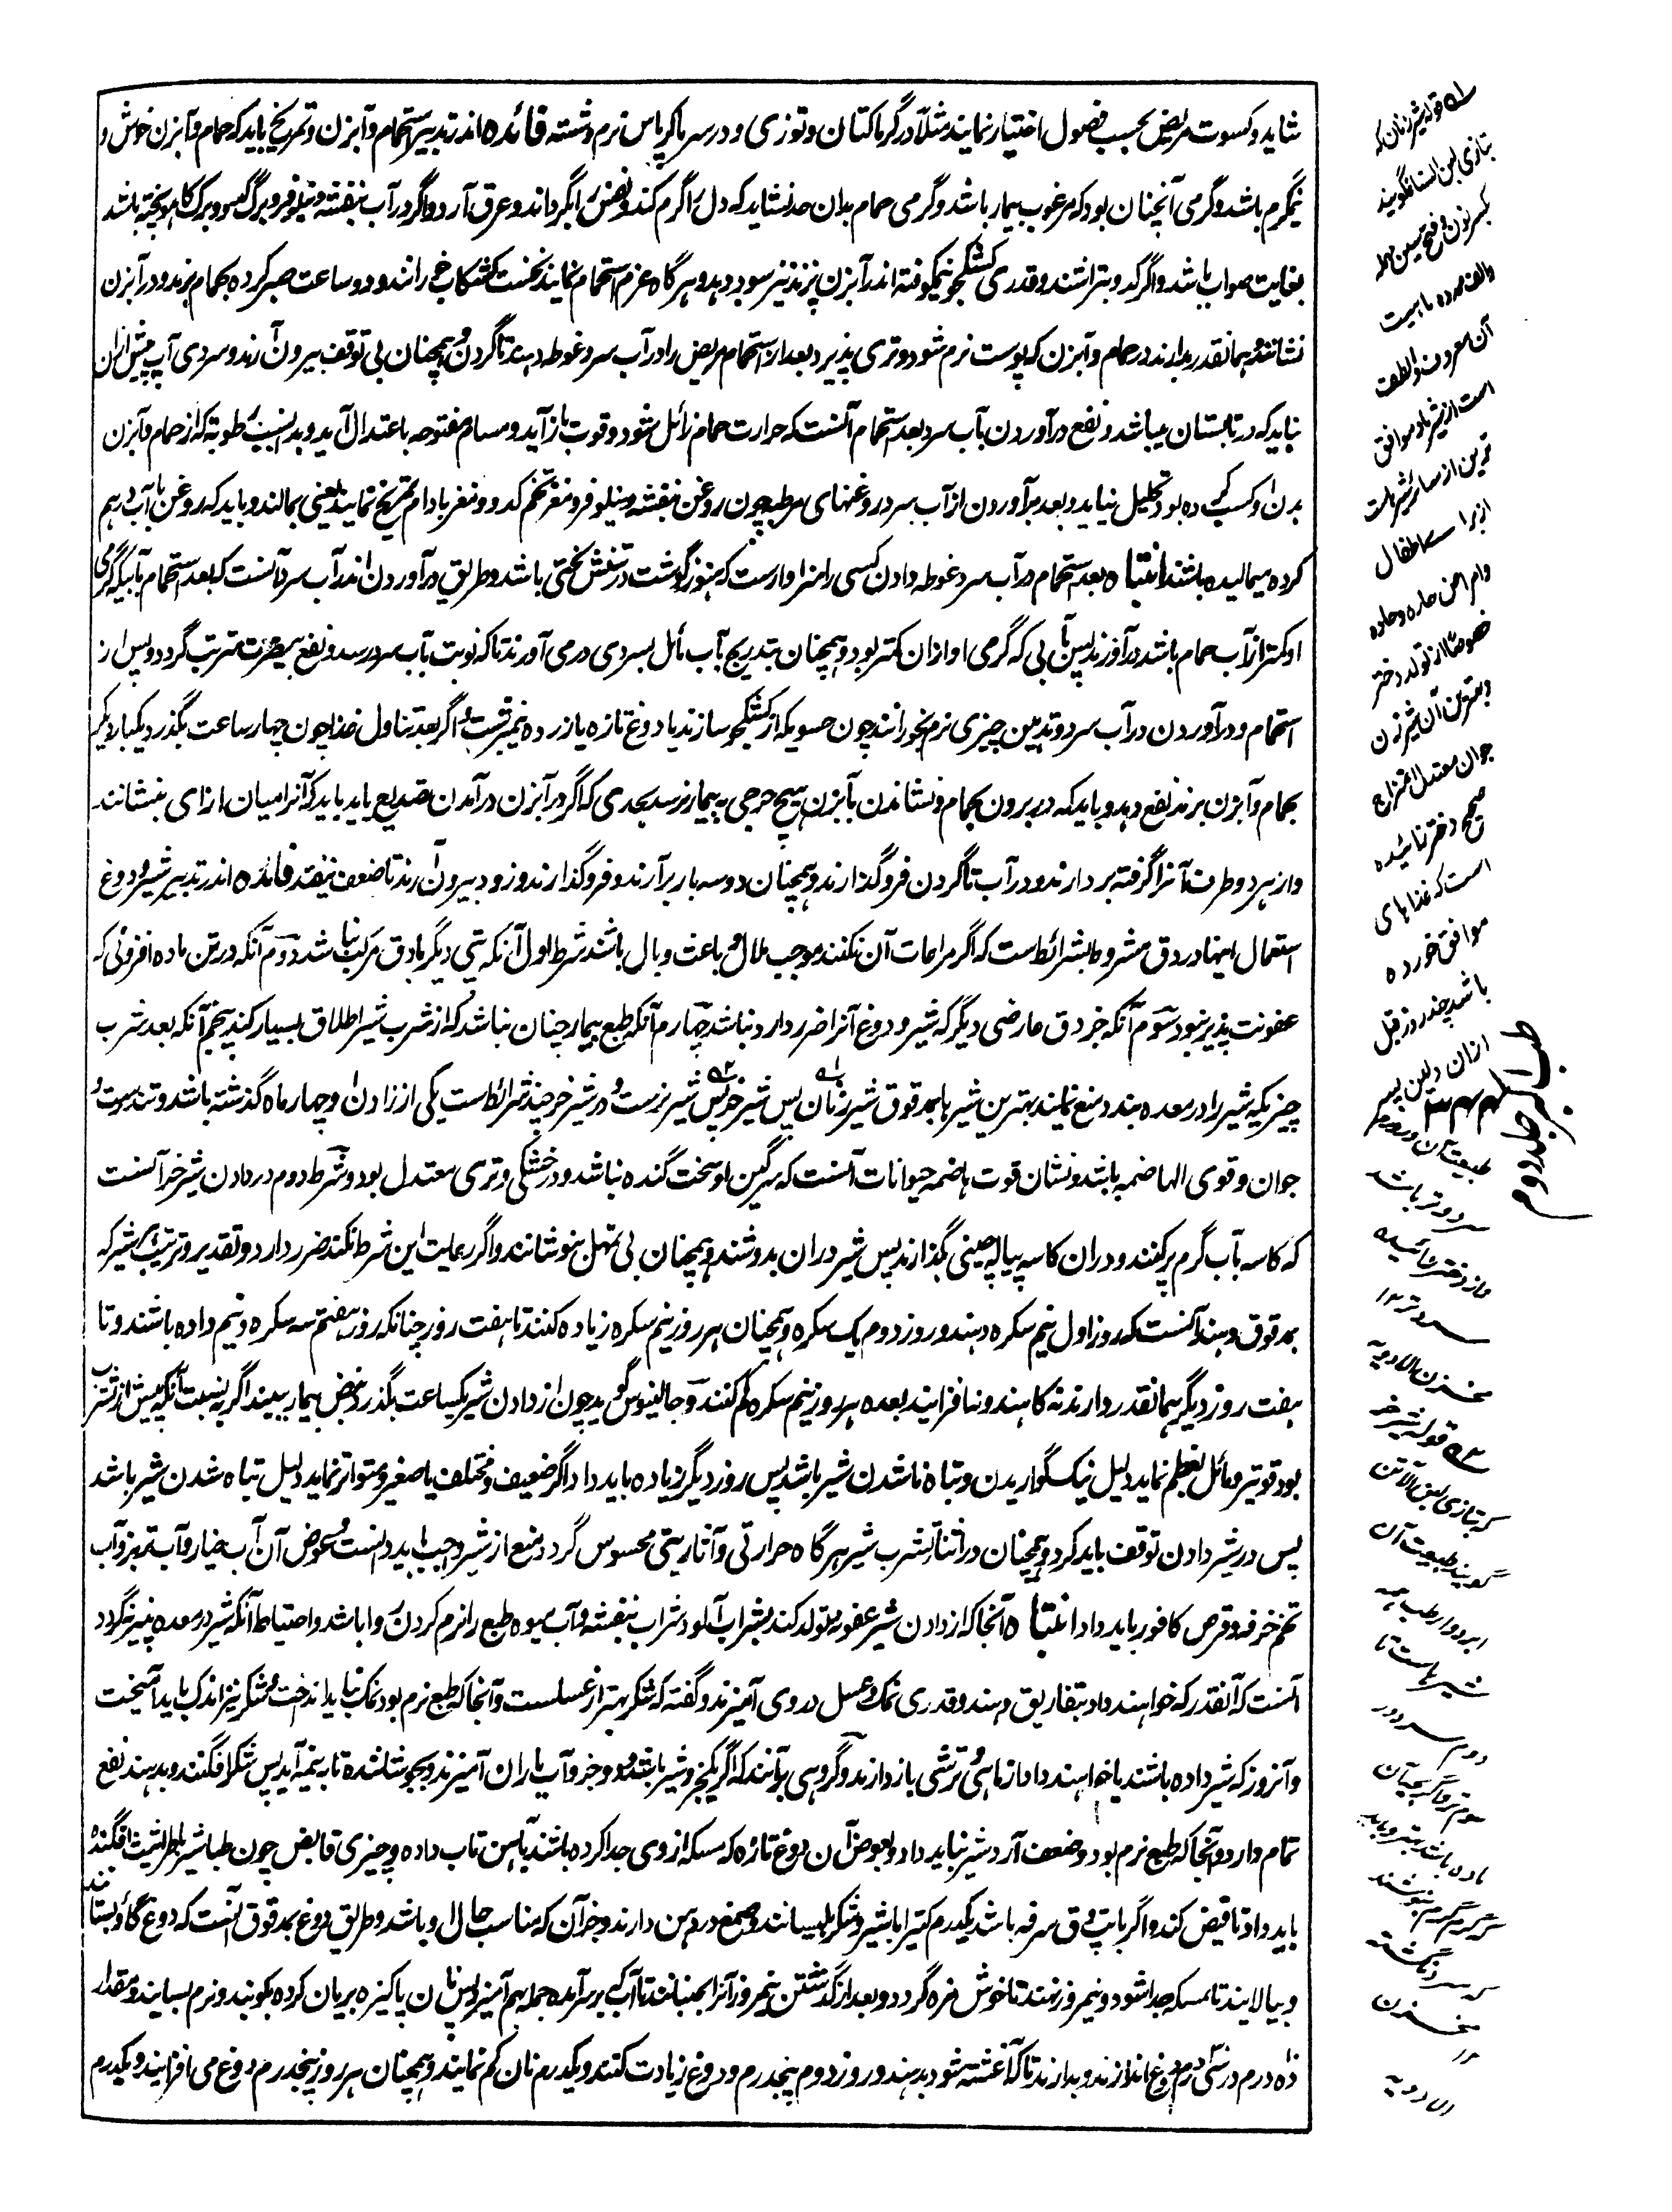 شاید و کسوت مریض بحسب فصول اختیار نمایند مثلاً در گرما کتان و توزی و در سرما کرپاس نرم و شسته فائده اندر تدبیر استحمام و آبزن و تمریخ باید که حمام و آبزن خوش و
نیمگرم باشد و گرمی آنچنان بود که مرغوب بیمار باشد و گرمی حمام بدان حد نشاید که دل را گرم کند و نفس را بگرداند و عرق آرد و اگر در آب بنفشه و نیلوفر و برگ کدو و برگ کاهو پخته باشد
بغایت صواب باشد و اگر کدو بتراشند و قدری کشکجو نیمکوفته اندر آبزن پزند نیز سود دهد و هرگاه عزم استحمام نمایند نخست کشکاب خورانند و دو ساعت صبر کرده بحمام برند و در آبزن
نشانند و همانقدر بدارند در حمام و آبزن که پوست نرم شود و تری پذیرد بعد از استحمام مریض را در آب سرد غوطه دهند تا گردن و همچنان بی توقف بیرون آرند و سردی آب بیش ازان
نباید که در تابستان میباشد و نفع در آوردن بآب سرد بعد استحمام آنست که حرارت حمام زائل شود و قوت باز آید و مسام مفتوحه باعتدال آید و بدین سبب رطوبتی که از حمام و آبزن
بدن او کسب کرده بود تحلیل نیابد و بعد برآوردن از آب سرد روغنهای مرطب چون روغن بنفشه و نیلوفر و مغز تخم کدو و مغز بادام تمریخ نمایند یعنی بمالند و باید که روغن با آب درهم
کرده میمالیده باشند انتباه بعد استحمام در آب سرد غوطه دادن کسی را سزاوارست که هنوز گوشت در تنش لختی باشد و طریق در آوردن اندر آب سرد آنست که بعد استحمام بآبیکه گرمی
او کمتر از آب حمام باشد در آورند پس بآبی که گرمی او ازان کمتر بود و همچنان بتدریج بآب مائل بسردی درمی آورند تا که نوبت بآب سرد رسد و نفع بیمضرت مترتب گردد و پس از
استحمام و در آوردن در آب سرد و تدهین چیزی نرم بخورانند چون حسویکه از کشکجو سازند یا دوغ تازه یا زرده نیمبرشت و اگر بعد تناول غذا چون چهار ساعت بگذرد یکبار دیگر
بحمام و آبزن برند نفع دهد و باید که در بردن بحمام و نشاندن بآبزن هیچ حرجی به بیمار نرسد بحدی که اگر در آبزن در آمدن تصدیع یابد باید که آنرا میان ازاری بنشانند
و از هر دو طرف آنرا گرفته بردارند و در آب تا گردن فروگذارند و همچنان دو سه بار برآرند و فروگذارند و زود بیرون آرند تا ضعف نیفتد فائده اندر تدبیر شیر و دوغ
استعمال اینها در دق مشروط بشرائط است که اگر مراعات آن نکنند موجب ملال و باعث وبال باشند شرط اول آنکه تپی دیگر با دق مرکب نباشد دوم آنکه در تن ماده افزونی که
عفونت پذیر نبود سوم آنکه جز دق عارضی دیگر که شیر و دوغ آنرا ضرر دارد نباشد چهارم آنکه طبع بیمار چنان نباشد که از شرب شیر اطلاق بسیار کند پنجم آنکه بعد شرب
چیزیکه شیر را در معده بندد منع نمایند بهترین شیرها بمدقوق شیر زنان پس شیر خر پس شیر بزست و در شیر خر چند شرائط است یکی از زادن او چهار ماه گذشته باشد و تندرست و
جوان و قوی الهاضمه باشد و نشان قوت هاضمه حیوانات آنست که سرگین او سخت گنده نباشد و در خشکی و تری معتدل بود و شرط دوم در دادن شیر خر آنست
که کاسه بآب گرم پر کنند و دران کاسه پیاله چینی بگذارند پس شیر دران بدوشند و همچنان بی تمهل بنوشانند و اگر رعایت این شرط نکنند ضرر دارد و تقدیر و ترتیب شیر که
بمدقوق دهند آنست که روز اول نیم سکره دهند و روز دوم یک سکره و همچنان هر روز نیم سکره زیاده کنند تا هفت روز چنانکه روز هفتم سه سکره و نیم داده باشند و تا
هفت روز دیگر همانقدر دارند نه کاهند و نه افزایند بعده هر روز نیم سکره کم کنند و جالینوس گوید چون از دادن شیر یکساعت بگذرد نبض بیمار ببیند اگر به نسبت آنکه پیش از شرب
بود قویتر و مائل بعظم نماید دلیل نیک گواریدن و تباه ناشدن شیر باشد پس روز دیگر زیاده باید داد اگر ضعیف و مختلف یا صغیر و متواتر نماید دلیل تباه شدن شیر باشد
پس در شیر دادن توقف باید کرد و همچنان در اثنای شرب شیر هرگاه حرارتی و آثار تپی محسوس گردد منع از شیر واجب باید دانست و عوض آن آب خیار و آب تربز و آب
تخم خرفه و قرص کافور باید داد انتباه آنجا که از دادن شیر عفونت تولد کند بشراب آلو و شراب بنفشه و آب میوه طبع را نرم کردن روا باشد و احتیاط آنکه شیر در معده پنیر نگردد
آنست که آنقدر که خواهند داد بتفاریق دهند و قدری نمک و عسل در وی آمیزند و گفته که شکر بهتر از عسلست و آنجا که طبع نرم بود نمک نباید انداخت و شکر نیز اندک باید آمیخت
و آنروز که شیر داده باشند یا خواهند داد از ماهی و ترشی باز دارند و گروهی برآنند که اگر یکجزو شیر باشد و دو جزو آب باران آمیزند و بجوشانند تا به نیمه آید پس شکر افگنند و بدهند نفع
تمام دارد و آنجا که طبع نرم بود و ضعف آرد شیر نباید داد و بعوض آن دوغ تازه که مسکه از وی جدا کرده باشند بآهن تاب داده و چیزی قابض چون طباشیر و طراثیث افگنده
باید داد تا قبض کند و اگر با تپ دق سرفه باشد یکدرم کتیرا با شیر و شکر بلیسانند و صمغ در دهن دارند و جز آن که مناسب حال او باشد و طریق دوغ بمدقوق آنست که دوغ گاو بستانند
و بپالایند تا مسکه جدا شود و نیمروز نهند تا خوش مزه گردد و بعد از گذشتن نیمروز آنرا بجنبانند تا آب که بر سر آمده جمله بهم آمیزد پس نان پاکیزه بریان کرده بکوبند و نرم بسایند و مقدار
ده درم در سی درم دوغ اندازند و بدارند تا که آغشته شود بدهند و روز دوم پنجدرم دوغ زیادت کنند و یکدرم نان کم نمایند و همچنان هر روز پنجدرم دوغ می افزایند و یکدرم
قوله شیر زنان که
بتازی لبن النسا گویند
بکسر نون و فتح سین مهمله
والف ممدوده ماهیت
آن معروف و الطف
است از شیر ماده موافق
ترین از سائر شیرهاست
از برای اطفال
وامراض حاره و حاده
خصوصاً از تولد دختر
و بهترین آن شیر زن
جوان معتدل المزاج
صحیح دختر زائیده
است که غذاهای
موافق خورده
باشد چند روز قبل
ازان و لبن پسر
طبیعت آن در دوم
سرد و تر باشد
و از دختر زائیده
سردتر ۱۲
مخزن الادویه
قوله شیر خر
که بتازی لبن الاتن
گویند طبیعت آن
ابرد و ارطب همه
شیرهاست تا
دوم سرد و در
سوم تر و اگر بچه آن
ماده باشد بهتر و باید
گرم گرم بنوشند
که سرد نگشته
مخزن
الادویه
طب اکبر جلد دوم